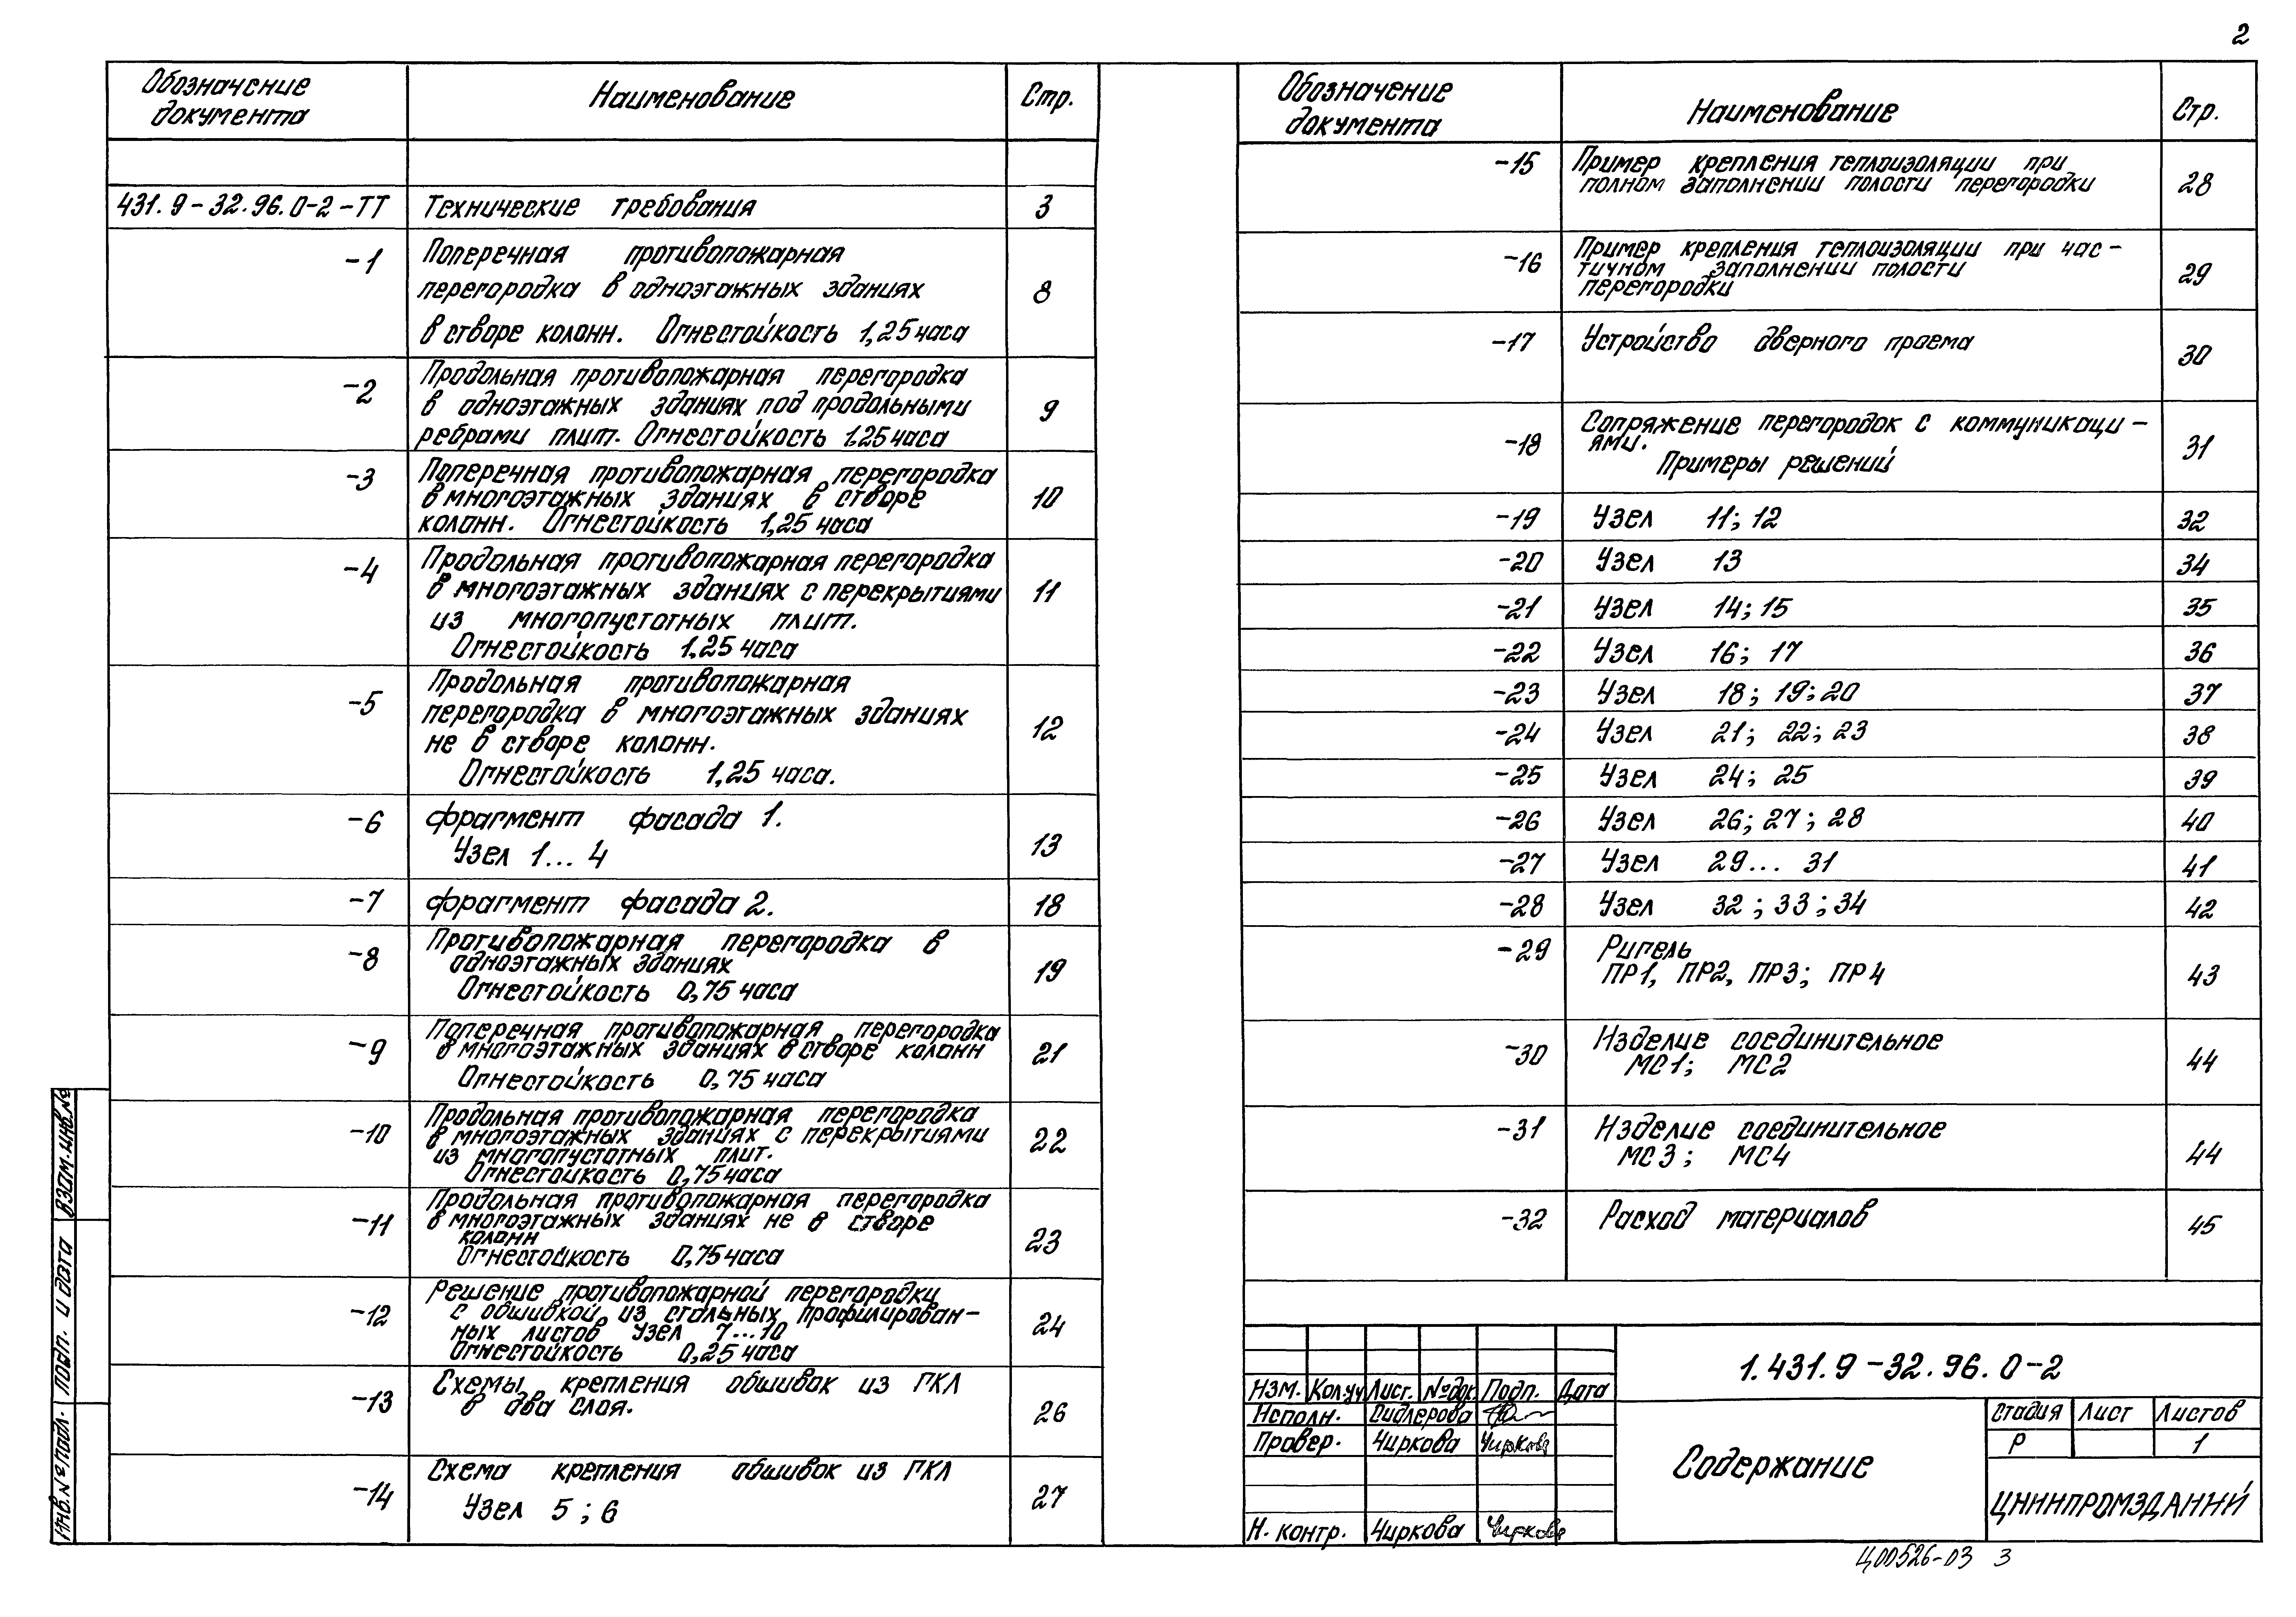 2
Обозначение документа Наименование Стр.
431.9-32.96.0-2-ТТ Технические требования 3
-1 Поперечная противопожарная
перегородка в одноэтажных зданиях 8
в створе колонн. Огнестойкость 1,25 часа
-2 Продольная противопожарная перегородка
в одноэтажных зданиях под продольными 9
ребрами плит. Огнестойкость 1.25 часа
-3 Поперечная противопожарная перегородка
в многоэтажных зданиях в створе 10
колонн. Огнестойкость 1,25 часа
-4 Продольная противопожарная перегородка
в многоэтажных зданиях с перекрытиями 11
из многопустотных плит.
Огнестойкость 1.25 часа
-5 Продольная противопожарная
перегородка в многоэтажных зданиях
не в створе колонн. 12
Огнестойкость 1,25 часа.
-6 Фрагмент фасада 1.
Узел 1... 4 13
-7 Фрагмент фасада 2. 18
-8 Противопожарная перегородка в
одноэтажных зданиях 19
Огнестойкость 0,75 часа
-9 Поперечная противопожарная перегородка
в многоэтажных зданиях в створе колонн 21
Огнестойкость 0,75 часа
-10 Продольная противопожарная перегородка
в многоэтажных зданиях с перекрытиями 22
из многопустотных плит.
Огнестойкость 0,75 часа
-11 Продольная противопожарная перегородка
в многоэтажных зданиях не в створе
колонн 23
Огнестойкость 0,75 часа
-12 Решение противопожарной перегородки
с обшивкой из стальных профилирован-
ных листов Узел 7...10 24
Огнестойкость 0,25 часа
-13 Схемы крепления обшивок из ГКЛ
в два слоя. 26
-14 Схема крепления обшивок из ГКЛ
Узел 5 ; 6 27
Обозначение документа Наименование Стр.
-15 Пример крепления теплоизоляции при
полном заполнении полости перегородки 28
-16 Пример крепления теплоизоляции при час-
тичном заполнении полости 29
перегородки
-17 Устройство дверного проема 30
-18 Сопряжение перегородок с коммуникаци-
ями. 31
Примеры решений
-19 Узел 11; 12 32
-20 Узел 13 34
-21 Узел 14; 15 35
-22 Узел 16; 17 36
-23 Узел 18; 19; 20 37
-24 Узел 21; 22; 23 38
-25 Узел 24; 25 39
-26 Узел 26; 27; 28 40
-27 Узел 29... 31 41
-28 Узел 32; 33; 34 42
-29 Ригель
ПР1, ПР2, ПР3; ПР4 43
-30 Изделие соединительное
МС1; МС2 44
-31 Изделие соединительное
МС3; МС4 44
-32 Расход материалов 45
1.431.9-32.96.0-2
Изм. Кол.уч Лист. №док. Подп. Дата
Исполн. Сидлерова
Провер. Чиркова Чиркова
Н. контр. Чиркова Чиркова
Содержание
Стадия Лист Листов
Р 1
ЦНИИПРОМЗДАНИЙ
Инв.№ подл. Подп. и дата Взам.инв.№
Ц00526-03 3